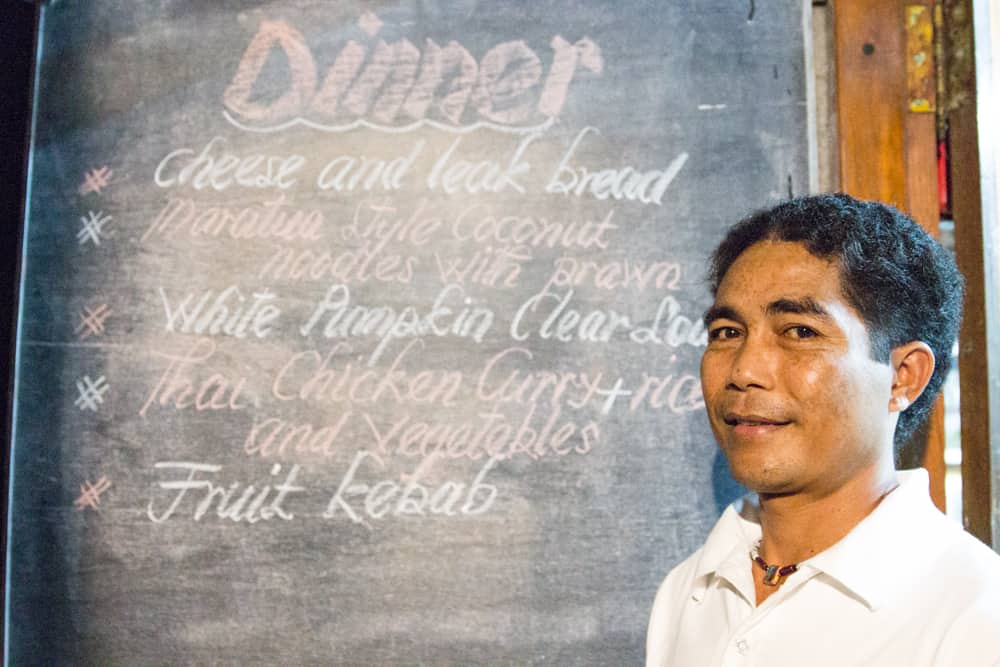 Dinner
# cheese and leak bread
# Maratua Style Coconut
noodles with prawn
# White Pumpkin Clear
# Thai Chicken Curry + rice
and Vegetables
# Fruit kebab